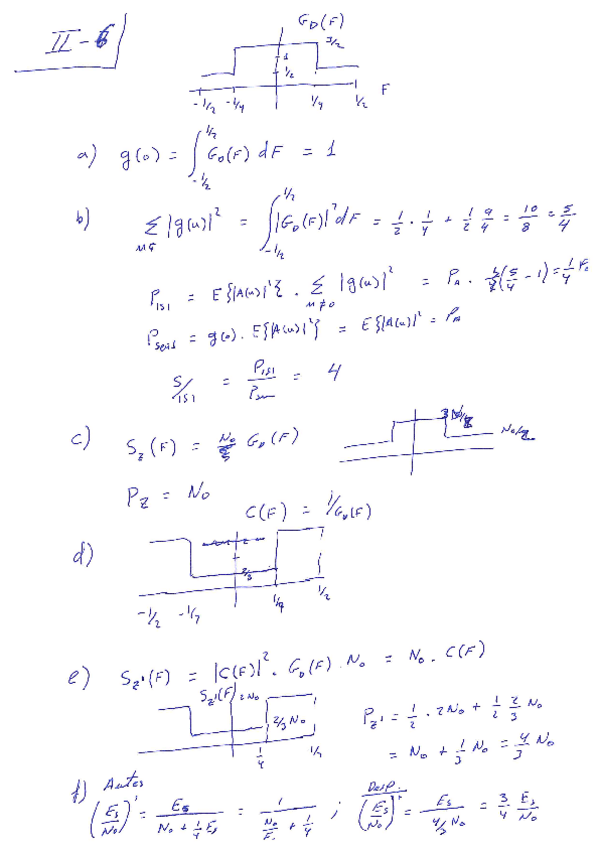 II-6
G_D(F)
3/2
1
1/2
-1/2 -1/4 1/4 1/2 F
a) g(0) = ∫_{-1/2}^{1/2} G_D(F) dF = 1
b) Σ |g(n)|² = ∫_{-1/2}^{1/2} |G_D(F)|² dF = 1/2 · 1/4 + 1/2 9/4 = 10/8 = 5/4
P_ISI = E{|A(n)|²} · Σ_{n≠0} |g(n)|² = P_A · (5/4 - 1) = 1/4 P_A
= g(0) · E{|A(n)|²} = E{|A(n)|²} = P_A
S/ISI = P_ISI/ = 4
c) S_z(F) = N_0 G_D(F)
P_z = N_0
C(F) = 1/G_D(F)
d)
2
2/3
-1/2 1/4 1/2
e) S_z'(F) = |C(F)|² · G_D(F) · N_0 = N_0 · C(F)
S_z'(F) 2N_0
2/3 N_0
1/4
P_z' = 1/2 · 2N_0 + 1/2 2/3 N_0
= N_0 + 1/3 N_0 = 4/3 N_0
f) Antes
Desp.
(E_s/N_0)' = E_s/(N_0 + 1/4 E_s) = 1/(N_0/E_s + 1/4) ; (E_s/N_0)' = E_s/(4/3 N_0) = 3/4 E_s/N_0